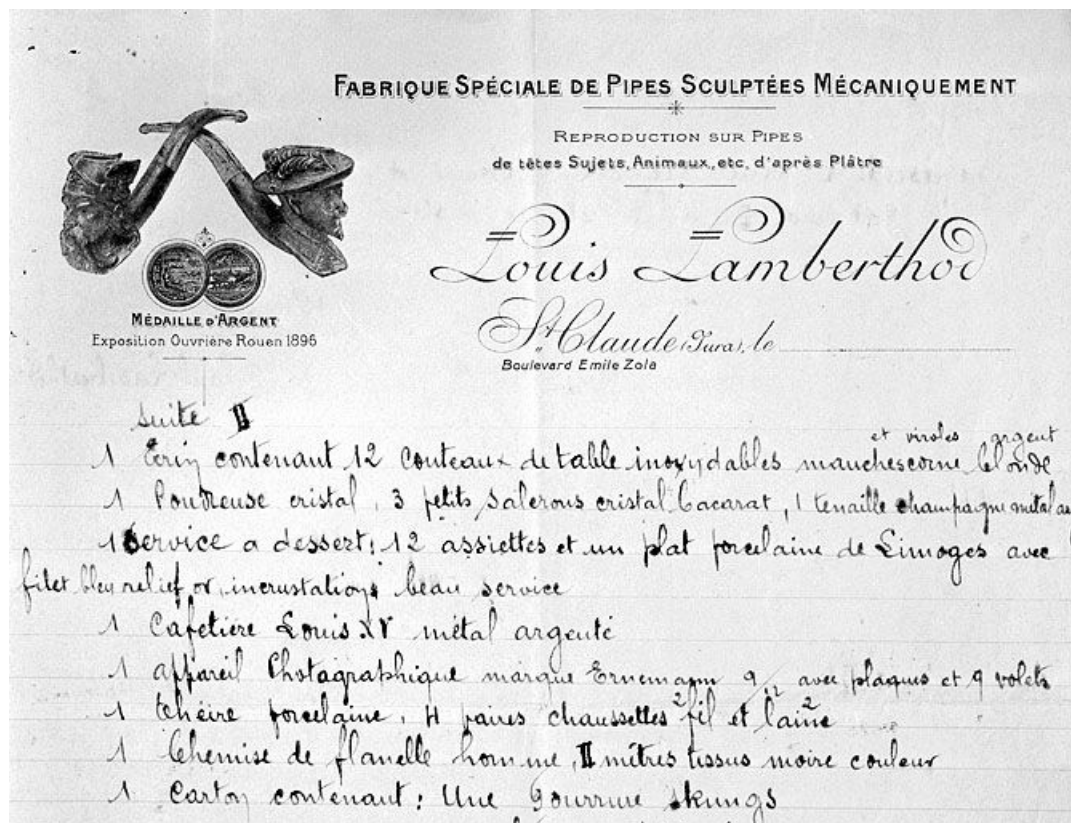 FABRIQUE SPÉCIALE DE PIPES SCULPTÉES MÉCANIQUEMENT
REPRODUCTION SUR PIPES
de têtes Sujets, Animaux, etc, d'après Plâtre
Louis Lamberthod
St Claude (Jura), le
Boulevard Emile Zola
MÉDAILLE D'ARGENT
Exposition Ouvrière Rouen 1896
suite II
et viroles argent
1 Ecrin contenant 12 couteaux de table inoxydables manches corne blonde
1 Poudreuse cristal, 3 petits salerons cristal Bacarat, 1 tenaille champagne métal
1 Service a dessert: 12 assiettes et un plat porcelaine de Limoges avec
filet bleu relief or, incrustations beau service
1 Cafetière Louis XV métal argenté
1 appareil Photagraphique marque Ernemann 9/12 avec plaques et 9 volets
1 théire porcelaine, 4 paires chaussettes 2 fil et 2 laine
1 Chemise de flanelle homme, II mètres tissus moire couleur
1 Carton contenant: Une skungs